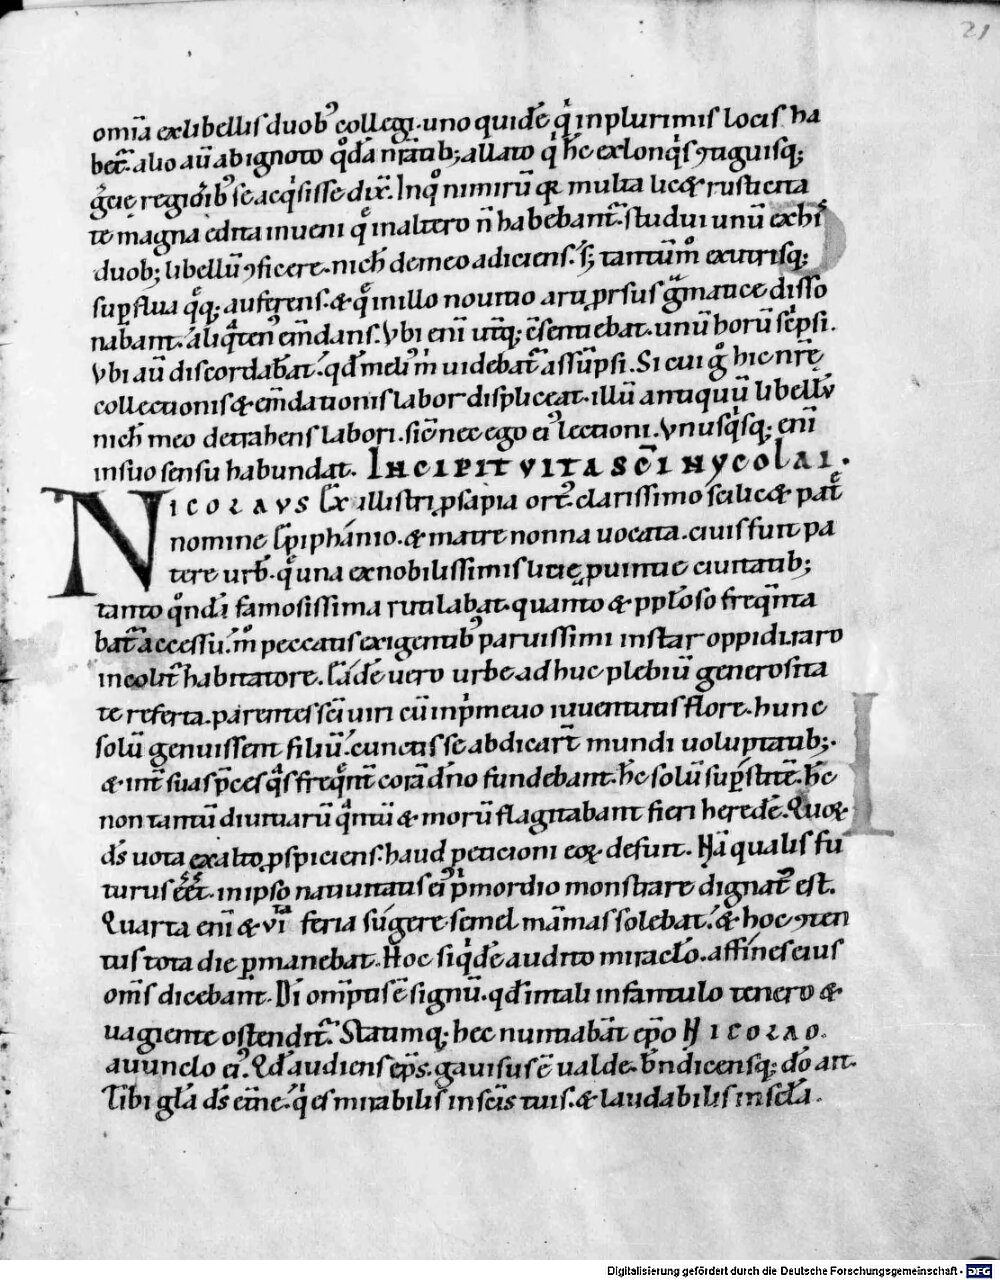 21
omīa ex libellis duobꝰ collegi. uno quidē q̇ in plurimis locis ha
bet̄. alio aū ab ignoto q̄dā n̄r̄atib; allato q̇ hc̄ ex lonqͥs ꝯtiguisq;
grecie regiōibꝰ se acqͥsisse dix̄. In qͦ nimirū qꝛ multa lic& rusticita
te magna edita inueni q̄ in altero n̄ habebant̄. studui unū ex hiͥ
duob; libellū ꝯficere. nich̄ de meo adiciens. s; tantūmͦ ex utrisq;
suꝑflua q̄q; auferens. & q̄ in illo nouitio arti ꝓrsus gͣmatice disso
nabant. aliqͣtenꝰ em̄dans. Vbi enī utrīq; c̄sentiebat. unū horū sc̄psi.
Vbi aū discordabāt. qd̄ meliꝰ m̄ uidebat̄ assūpsi. Si cui gͦ hic nr̄ę
collectionis & em̄dationis labor displiceat. illū antiquū libellū
nich̄ meo detrahens labori. sic̄ nec ego eiꝰ lectioni. Vnusqͥsq; enī
in suo sensu habundat. INCIPIT VITA SC̄I NYCOLAI.
NICOLAVS Ex illustri ꝓsapia ortꝰ. clarissimo scilic& pat̄
nomine Epiphánio. & matre nonna uocata. ciuis fuit pa
tere urb̄. q̄ una ex nobilissimis licię puintie ciuitatib;
tanto qͦndā famosissima rutilabat. quanto & ppl̄oso freq̄nta
bat̄ accessu. mͦ peccatis exigentibꝰ paruissimi instar oppidi raro
incolit̄ habitatore. Eādē uero urbē ad huc plebiū generosita
te referta. parentes sc̄i uiri cū in pͥmeuo iuuentutis flore. hunc
solū genuissent filiū. cunctis se abdicar̄t mundi uoluptatib;.
& int̄ suas p̄ces qͣs freq̄nt̄ corā dn̄o fundebant. hc̄ solū suꝑstitē. hc̄
non tantū diuitiarū qͣntū & morū flagitabant fieri heredē. Quoꝝ
ds̄ uota ex alto ꝓspiciens. haud peticioni eoꝝ defuit. Nā qualis fu
turus eēt. in ipso natiuitatis eiꝰ pͥmordio monstrare dignatꝰ est.
Quarta enī & VI feria súgere semel māmas solebat. & hoc ꝯten
tus tota die ꝑmanebat. Hoc siqͥdē audito miracl̄o. affines eius
oms̄ dicebant. Di om̄ptis ē signū. qd̄ in tali infantulo tenero &
uagiente ostendit̄. Statimq; hec nuntiabāt ep̄o NICOLAO.
auunclo eiꝰ. Qd̄ audiens ep̄s. gauisus ē ualde. bn̄dicensq; dō ait.
Tibi gl̄a ds̄ etn̄e. qͥ es mirabilis in sc̄is tuis. & laudabilis in sc̄la.
Digitalisierung gefördert durch die Deutsche Forschungsgemeinschaft - DFG